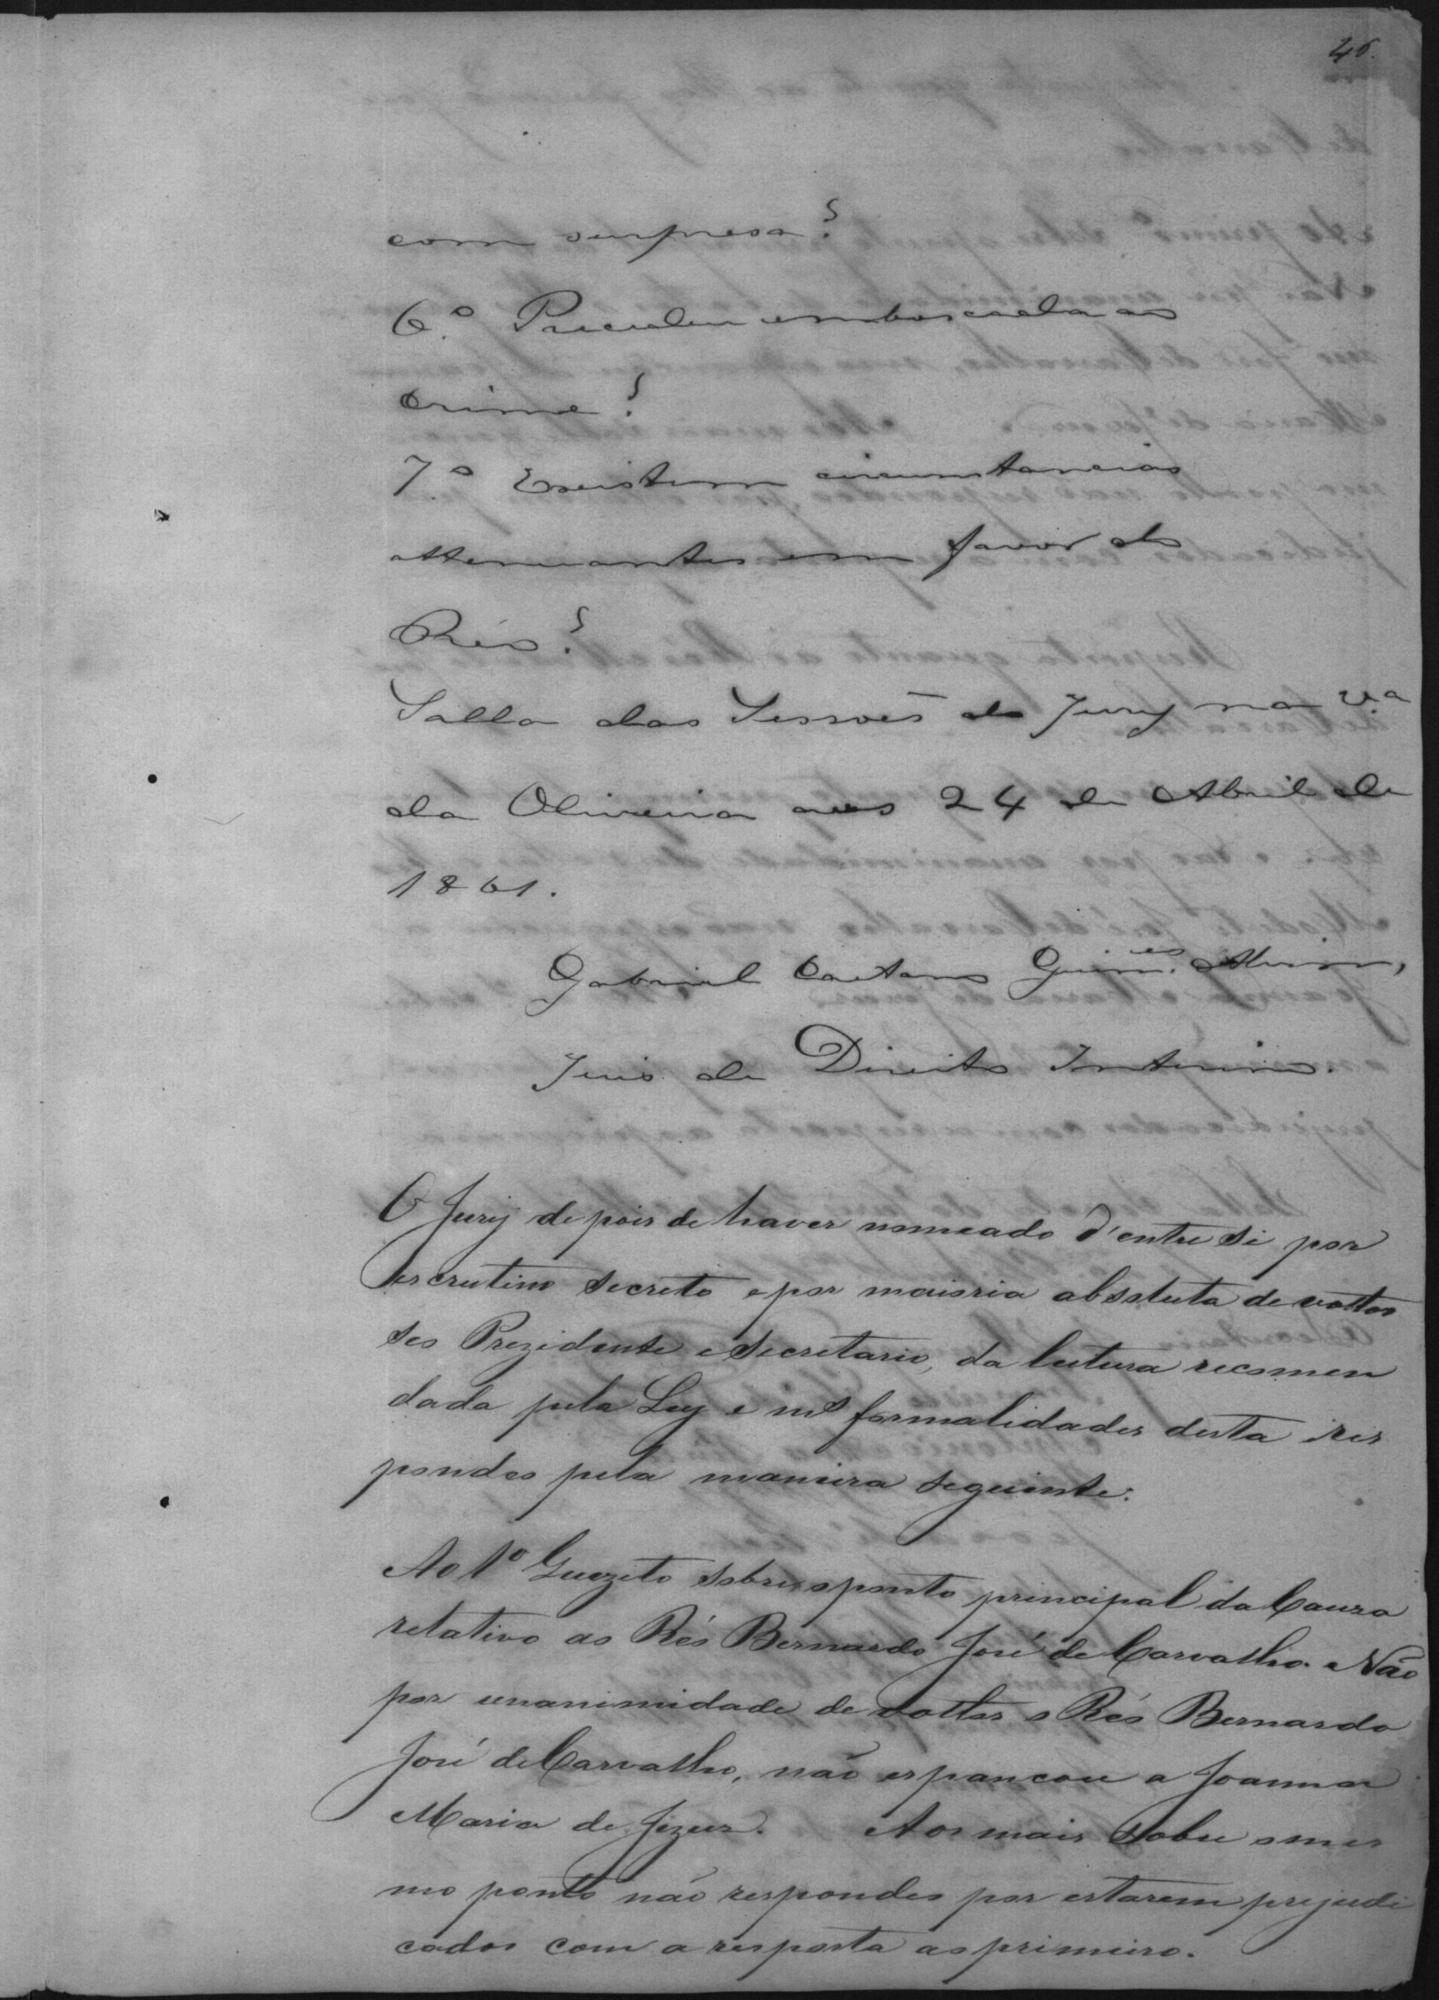 46.
com surpresa?
6.º Precedeu emboscada ao
crime?
7.º Existem circunstancias
attenuantes em favor do
Réo?
Salla das Sessoēs do Jury na V.ª
da Oliveira aos 24 de Abril de
1861.
Gabriel Caetano Guim.es
Juis de Direito Interino.
O Jury depois de haver nomeado d'entre si por
escrutino secreto e por maioria absoluta de vottos
seo Prezidente e Secretario, da leitura recomen
dada pela Ley e ms formalidades desta res
pondeo pela maneira seguinte:
Ao 1º Quezito sobre o ponto principal da Cauza
relativo ao Réo Bernardo José de Carvalho. Não
por unanimidade de vottos o Réo Bernardo
José de Carvalho, não espancou a Joanna
Maria de Jezus. Aos mais sobre o mes
mo ponto não respondeo por estarem prejudi
cados com a resposta ao primeiro.